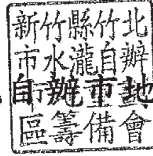 新竹縣竹北
市水瀧自辦
自辦市地
區籌備會